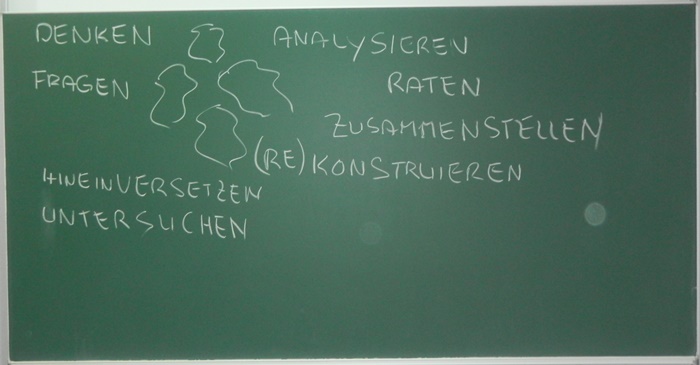 DENKEN
ANALYSIEREN
FRAGEN
RATEN
ZUSAMMENSTELLEN
(RE)KONSTRUIEREN
HINEINVERSETZEN
UNTERSUCHEN